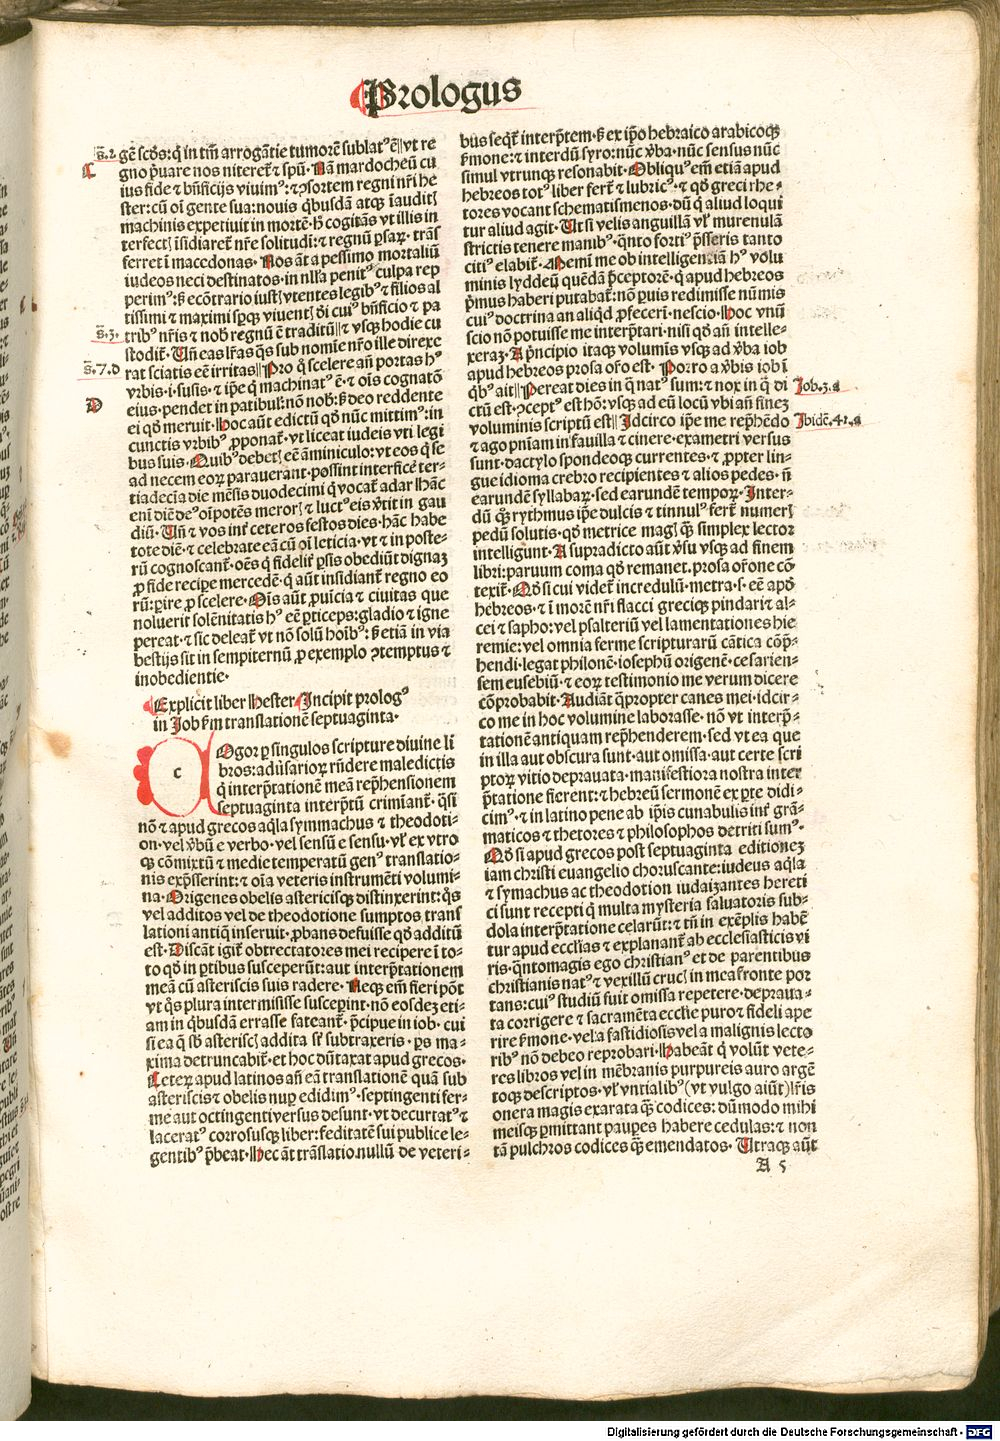 Prologus
s̄.2 gē scd̄s: q̇ in tm̄ arrogātie tumorē sublatꝰ ē‖vt re
C gno p̄uare nos niteret̄ ⁊ spū. Nā mardocheū cu
ius fide ⁊ bn̄ficijs viuimꝰ: ⁊ ꝯsortem regni nr̄i he
ster: cū oī gente sua: nouis q̇busdā atqꝫ īauditꝭ
machinis expetiuit in mortē. h̄ cogitās vt illis in
terfectꝭ īsidiaret̄ nr̄e solitudī: ⁊ regnū ꝑsaꝝ. trās
ferret ī macedonas. Nos āt a pessimo mortaliū
iudeos neci destinatos. in nll̄a penitꝰ culpa rep
perimꝰ: sꝫ ecōtrario iustꝭ vtentes legibꝰ ⁊ filios al
tissimi ⁊ maximi sꝑqꝫ viuentꝭ dī cuiꝰ bn̄ficio ⁊ pa
s̄.3. tribꝰ nr̄is ⁊ nob̄ regnū ē traditū‖⁊ vsqꝫ hodie cu
stodit̄. Vn̄ eas lr̄as q̄s sub nomīe nr̄o ille direxe
s̄.7.d rat sciatis eē irritas‖Pro q̇ scelere an̄ portas hꝰ
vrbis. i. susis. ⁊ ip̄e q̇ machinatꝰ ē. ⁊ oīs cognatō
D eius. pendet in patibul̄: nō nob̄: sꝫ deo reddente
ei qd̄ meruit. Hoc aūt edictū qd̄ nūc mittimꝰ: in
cunctis vrbibꝰ ꝓponat̄. vt liceat iudeis vti legi
bus suis. Quibꝰ debetꝭ eē āminiculo: vt eos q̇ se
ad necem eoꝝ parauerant. possint interficē ter-
tiadecīa die mēsis duodecimi q̇ vocat̄ adar‖hāc
enī diē deꝰ oīpotēs merorꝭ ⁊ luctꝰ eis v̄tit in gau
diū. Vn̄ ⁊ vos int̄ ceteros festos dies. hāc habe
tote diē. ⁊ celebrate eā cū oī leticia. vt ⁊ in poste-
rū cognoscant̄. oēs q̇ fidelit̄ ꝑsis obediūt dignaꝫ
ꝓ fide recipe mercedē. q̇ aūt insidiant̄ regno eo
rū: ꝑire ꝓ scelere. Oīs aūt ꝓuīcia ⁊ ciuitas que
noluerit solēnitatis hꝰ eē ꝑticeps: gladio ⁊ igne
pereat. ⁊ sic deleat̄ vt nō solū hoībꝰ: sꝫ etiā in via
bestijs sit in sempiternū ꝓ exemplo ꝯtemptus ⁊
inobedientie.
Explicit liber Hester Incipit prologꝰ
in Job sꝫm translationē septuaginta.
c Ogor ꝑ singulos scripture diuine li
bros: adūsarioꝝ rn̄dere maledictis
q̇ interp̄tationē meā rep̄hensionem
septuaginta interp̄tū crimīant̄. q̄si
nō ⁊ apud grecos aq̇la symmachus ⁊ theodoti-
on. vel v̄bū e verbo. vel sensū e sensu. vl̄ ex vtro
qꝫ cōmixtū ⁊ medie temperatū genꝰ translatio-
nis exp̄sserint: ⁊ oīa veteris instrumēti volumi-
na. Origenes obelis astericisqꝫ distinxerint: q̄s
vel additos vel de theodotione sumptos. trans
lationi antiq̄ inseruit. ꝓbans defuisse qd̄ additū
est. Discāt igit̄ obtrectatores mei recipere ī to-
to qd̄ in ꝑtibus susceperūt: aut interp̄tationem
meā cū asteriscis suis radere. Neqꝫ em̄ fieri pōt
vt q̄s plura intermisisse suscepint. nō eosdeꝫ eti-
am in q̇busdā errasse fateant̄. p̄cipue in iob. cui
si ea q̄ sb̄ asteriscꝭ addita sr̄ subtraxeris. ꝑs ma-
xima detruncabit̄. et hoc dūtaxat apud grecos.
Ceterꝝ apud latinos an̄ eā translationē quā sub
asteriscis ⁊ obelis nuꝑ edidimꝰ. septingenti fer-
me aut octingenti versus desunt. vt decurtatꝰ ⁊
laceratꝰ corrosusqꝫ liber: feditatē sui publice le-
gentibꝰ p̄beat. Hec āt trāslatio nullū de veteri-
bus seqt̄ interp̄tem. sꝫ ex ip̄o hebraico arabicoqꝫ
sꝫmone: ⁊ interdū syro: nūc v̄ba. nūc sensus nūc
simul vtrunqꝫ resonabit. Obliquꝰ em̄ etiā apud
hebreos totꝰ liber fert̄ ⁊ lubricꝰ. ⁊ qd̄ greci rhe-
tores vocant schematismenos. dū q̄ aliud loquit̄
tur aliud agit. Vt si velis anguillā vl̄ murenulā
strictis tenere manibꝰ. q̄nto fortiꝰ p̄sseris tanto
citiꝰ elabit̄. Memī me ob intelligentiā hꝰ volu
minis lyddeū quēdā p̄ceptorē. q̇ apud hebreos
p̄mus haberi putabat̄: nō ꝑuis redimisse nūmis
cuiꝰ doctrina an aliqd ꝓfecerī. nescio. Hoc vnū
scio nō potuisse me interp̄tari. nisi qd̄ an̄ intelle-
xeraꝫ. A p̄ncipio itaqꝫ volumīs vsqꝫ ad v̄ba iob
apud hebreos prosa or̄o est. Porro a v̄bis iob ī
q̇bꝰ ait‖Pereat dies in q̄ natꝰ sum: ⁊ nox in q̄ di Job.3.a
ctū est. ꝯceptꝰ est hō: vsqꝫ ad eū locū vbi an̄ fineꝫ
voluminis scriptū est‖Idcirco ip̄e me rep̄hēdo Ibidē.42.a
⁊ ago pn̄iam in fauilla ⁊ cinere. exametri versus
sunt. dactylo spondeoqꝫ currentes. ⁊ ꝓpter lin-
gue idioma crebro recipientes ⁊ alios pedes. n̄
earundē syllabaꝝ. sed earundē tempoꝝ. Inter-
dū qꝫ rythmus ip̄e dulcis ⁊ tinnulꝰ fert̄ numerꝭ
pedū solutis. qd̄ metrice magꝭ qꝫ simplex lector
intelligunt. A supradicto aūt v̄su vsqꝫ ad finem
libri: paruum coma qd̄ remanet. prosa or̄one cō
texit̄. Qd̄ si cui videt̄ incredulū. metra. s. eē apd̄
hebreos. ⁊ ī morē nr̄i flacci greciqꝫ pindari ⁊ al-
cei ⁊ sapho: vel psalteriū vel lamentationes hie
remie: vel omnia ferme scripturarū cātica cōp̄-
hendi. legat philonē. iosephū origenē. cesarien-
sem eusebiū. ⁊ eoꝝ testimonio me verum dicere
cōprobabit. Audiāt q̄propter canes mei. idcir-
co me in hoc volumine laborasse. nō vt interp̄-
tationē antiquam rep̄henderem. sed vt ea que
in illa aut obscura sunt. aut omissa. aut certe scri
ptoꝝ vitio deprauata. manifestiora nostra inter
p̄tatione fierent: ⁊ hebreū sermonē ex ꝑte didi-
cimꝰ. ⁊ in latino pene ab ip̄is cunabulis int̄ grā-
maticos ⁊ thetores ⁊ philosophos detriti sumꝰ.
Qd̄ si apud grecos post septuaginta editioneꝫ
iam christi euangelio choruscante: iudeus aq̇la
⁊ symachus ac theodotion iudaizantes hereti
ci sunt recepti q̇ multa mysteria saluatoris sub-
dola interp̄tatione celarūt: ⁊ tn̄ in exēplis habē
tur apud eccl̄ias ⁊ explanant̄ ab ecclesiasticis vi
ris. q̄ntomagis ego christianꝰ et de parentibus
christianis natꝰ ⁊ vexillū crucꝭ in mea fronte por
tans: cuiꝰ studiū fuit omissa repetere. depraua-
ta corrigere ⁊ sacramēta ecclie puro ⁊ fideli ape
rire sꝫmone. vel a fastidiosis vel a malignis lecto
ribꝰ nō debeo reprobari. Habeāt q̇ volūt vete-
res libros vel in mēbranis purpureis auro argē
toqꝫ descriptos. vl̄ vntialibꝰ (vt vulgo aiūt) lr̄is
onera magis exarata qꝫ codices: dūmodo mihi
meisqꝫ ꝑmittant pauꝑes habere cedulas: ⁊ non
tā pulchros codices qꝫ emendatos. Utraqꝫ aūt
A 5
Digitalisierung gefördert durch die Deutsche Forschungsgemeinschaft - DFG